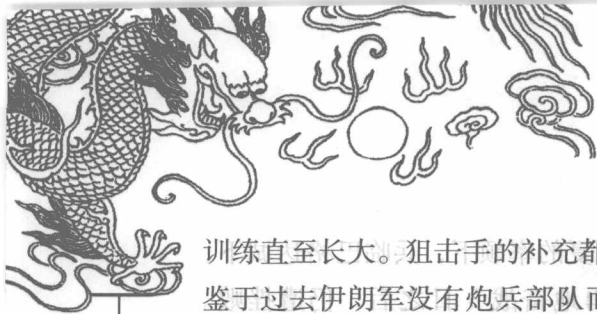 训练直至长大。狙击手的补充都
鉴于过去伊朗军没有炮兵部队而